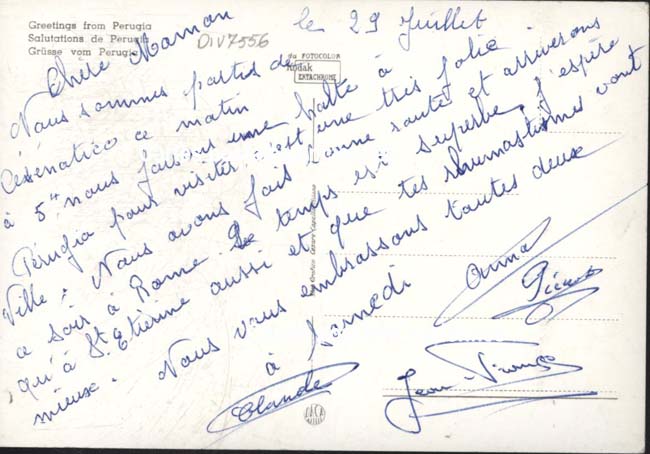 Greetings from Perugia
Salutations de Perugia
Grüsse vom Perugia
DIV7556
FOTOCOLOR
Kodak
EKTACHROME
le 29 Juillet
Chère Maman
Nous sommes partis de
Césenatico ce matin
à 5h, nous faisons une halte à
Pérugia pour visiter c'est une très jolie
Ville. Nous avons fait bonne route et arriverons
ce soir à Rome. Le temps est superbe, j'espère
qu'à St. Etienne aussi et que tes rhumatismes vont
mieux. Nous vous embrassons toutes deux
à Samedi
Anna
Pierre
Claude
Jean-